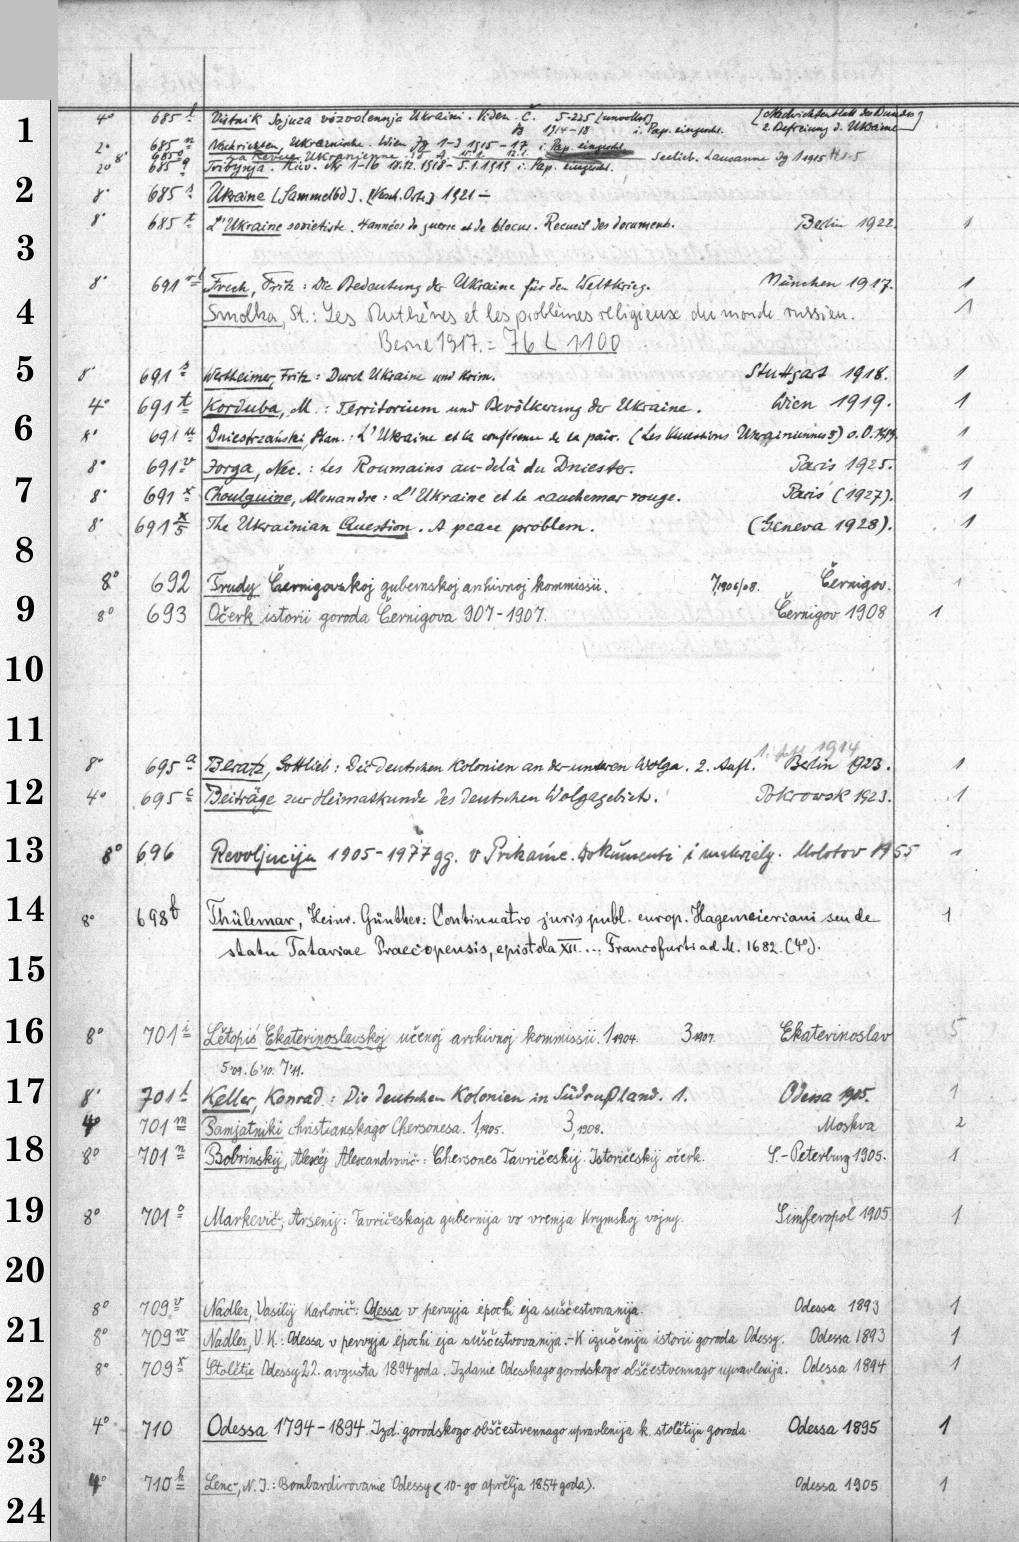 1
4° 685 l Vistnik Sojuza vyzvolennja Ukraini. Viden. Č. 5-225 [unvollst.] [Nachrichtenblatt des Bundes
1914-18 i. Pap. eingeschl. z. Befreiung d. Ukraine]
2° 685 n Nachrichten, Ukrainische. Wien Jg 1-3 1915-17 i. Pap. eingeschl.
8° 685 o La Revue Ukrainienne. Seelieb. Lausanne Jg 1 1915 H 1-5
2° 685 q Trybyna. Kiiv. Nr 1-16 18.12.1918-5.1.1919 i. Pap. eingeschl.
2
8° 685 s Ukraine [Sammelbd]. [Versch. Orte] 1921 -
8° 685 t L'Ukraine soviétiste. 4 années de guerre et de blocus. Recueil des documents. Berlin 1922. 1
3
8° 691 Frech, Fritz: Die Bedeutung der Ukraine für den Weltkrieg. München 1917. 1
4
Smolka, St.: Les Ruthènes et les problèmes religieux du monde russien. 1
Berne 1917. = 76 L 1100
5
8° 691 s Wertheimer, Fritz: Durch Ukraine und Krim. Stuttgart 1918. 1
4° 691 t Korduba, M.: Territorium und Bevölkerung der Ukraine. Wien 1919. 1
6
8° 691 u Dniestrzański, Stan.: L'Ukraine et la conférence de la paix. (Les Questions Ukrainiennes) o.O. 1919. 1
8° 691 v Jorga, Nic.: Les Roumains au-delà du Dniester. Paris 1925. 1
7
8° 691 x Choulguine, Alexandre: L'Ukraine et le cauchemar rouge. Paris (1927). 1
8° 691 x/5 The Ukrainian Question. A peace problem. (Geneva 1928). 1
8
8° 692 Trudy Černigovskoj gubernskoj archivnoj kommissii. 7,1906/08. Černigov. 1
9
8° 693 Očerk istorii goroda Černigova 907-1907. Černigov 1908 1
10
11
1. Aufl. 1914
8° 695 a Beratz, Gottlieb: Die deutschen Kolonien an der unteren Wolga. 2. Aufl. Berlin 1923. 1
12
4° 695 c Beiträge zur Heimatkunde des deutschen Wolgagebiets. Pokrowsk 1923. 1
13
8° 696 Revoljucija 1905-1977 gg. v Prikam'e. Dokumenti i materialy. Molotov 1955 1
14
8° 698 b Thülemar, Heinr. Günther: Continuatio juris publ. europ. Hagemeieriani seu de 1
statu Tatariae Praecopensis, epistola XII.... Francofurti ad M. 1682. (4°).
15
16
8° 701 i Lětopiś Ekaterinoslavskoj učenoj archivnoj kommissii. 1,1904. 3,1907. Ekaterinoslav 5
5'09. 6'10. 7'11.
17
8° 701 l Keller, Konrad: Die deutschen Kolonien in Südrußland. 1. Odessa 1905. 1
4° 701 m Pamjatniki christianskago Chersonesa. 1,1905. 3,1908. Moskva 2
18
8° 701 n Bobrinskij, Alexěj Alexandrovič: Chersones Tavričeskij. Istoričeskij očerk. S.-Peterburg 1905. 1
19
8° 701 o Markevič, Arsenij: Tavričeskaja gubernija vo vremja Krymskoj vojny. Simferopol 1905 1
20
8° 709 v Nadler, Vasilij Karlovič: Odessa v pervyja epochi eja suščestvovanija. Odessa 1893 1
21
8° 709 w Nadler, V. K.: Odessa v pervyja epochi eja suščestvovanija. - K izučeniju istorii goroda Odessy. Odessa 1893 1
8° 709 x Stolětie Odessy 22. avgusta 1894 goda. Izdanie Odesskago gorodskogo obščestvennago upravlenija. Odessa 1894 1
22
4° 710 Odessa 1794-1894. Izd. gorodskogo obščestvennago upravlenija k stolětiju goroda Odessa 1895 1
23
4° 710 b Lenc, N. I.: Bombardirovanie Odessy (10-go aprělja 1854 goda). Odessa 1905 1
24